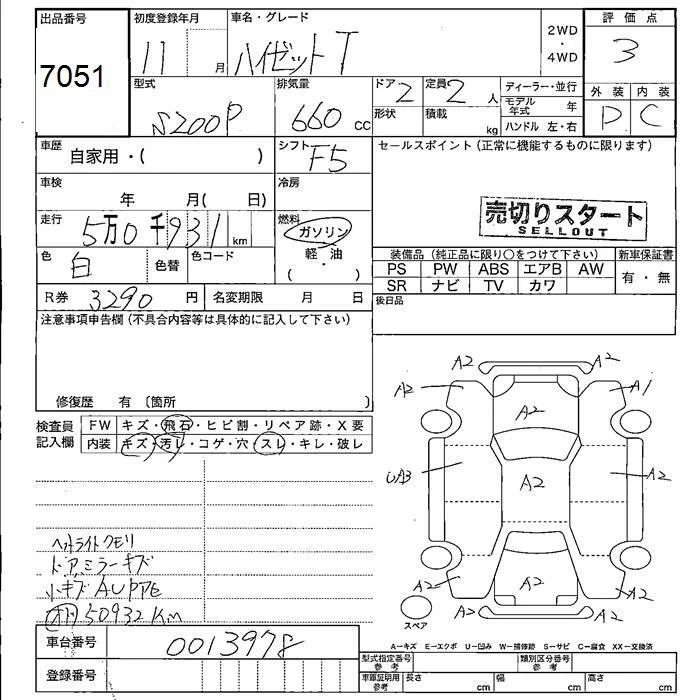 出品番号 初度登録年月 車名・グレード 2WD・4WD 評価点
7051 11月 ハイゼットT 3
型式 排気量 ドア 2 定員 2人 ディーラー・並行 外装 内装
S200P 660cc 形状 積載 kg モデル年式 年 D C
ハンドル 左・右
車歴 自家用・( ) シフト F5 セールスポイント(正常に機能するものに限ります)
車検 年 月( 日) 冷房
売切りスタート
SELLOUT
走行 5万0千931km 燃料 ガソリン
軽油
( ・ )
色 白 色替 色コード
装備品(純正品に限り〇をつけて下さい) 新車保証書
PS PW ABS エアB AW 有・無
SR ナビ TV カワ
R券 3290円 名変期限 月 日 後日品
注意事項申告欄(不具合内容等は具体的に記入して下さい)
修復歴 有〔箇所 〕
検査員記入欄 FW キズ・飛石・ヒビ割・リペア跡・X要
内装 キズ・汚レ・コゲ・穴・スレ・キレ・破レ
A2 A2
A2 A1
A2
UA3 A2 A2
A2
A2 A2
A2 A2
スペア
ヘットライトクモリ
ドアミラーキズ
小キズAUPPE
50932Km
A−キズ E−エクボ U−凹み W−補修跡 S−サビ C−腐食 XX−交換済
車台番号 0013978
登録番号
型式指定番号 参考 類別区分番号 参考
車庫証明用 参考 長さ cm 幅 cm 高さ cm